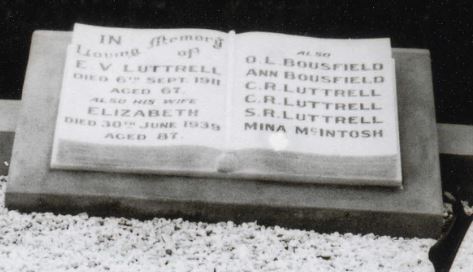 IN Loving Memory
of
E. V. LUTTRELL
DIED 6TH SEPT. 1911
AGED 67.
ALSO HIS WIFE
ELIZABETH
DIED 30TH JUNE 1939
AGED 87.
ALSO
O. L. BOUSFIELD
ANN BOUSFIELD
C. R. LUTTRELL
C. R. LUTTRELL
S. R. LUTTRELL
MINA MCINTOSH